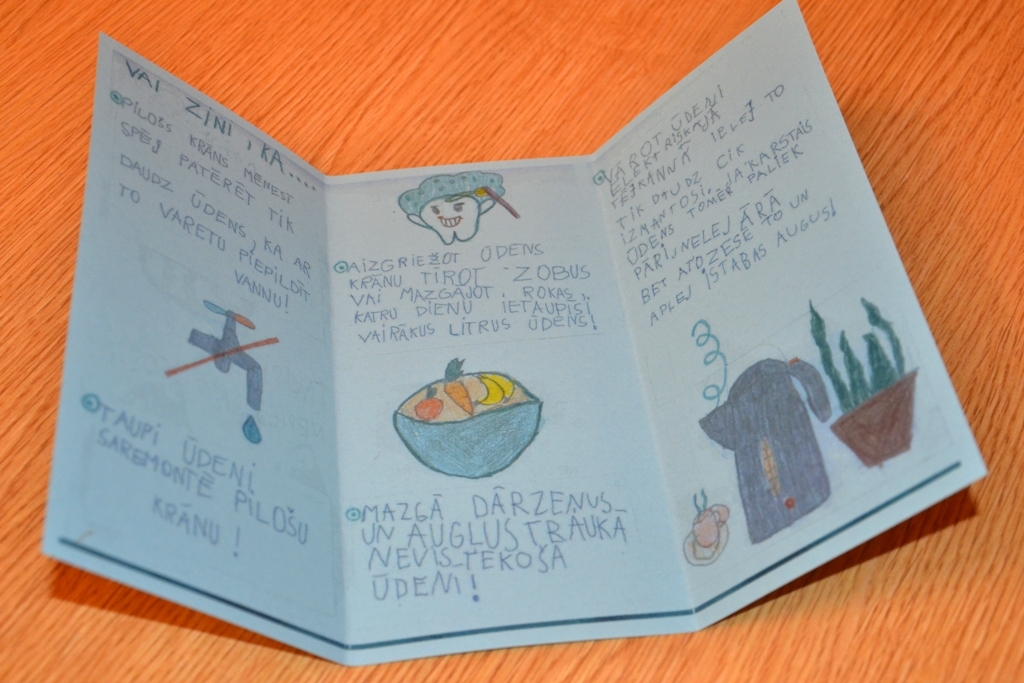 VAI ZINI, KA....
PILOŠS KRĀNS MĒNESĪ
SPĒJ PATĒRĒT TIK
DAUDZ ŪDENS, KA AR
TO VARĒTU PIEPILDĪT
VANNU!
TAUPI ŪDENI
SAREMONTĒ PILOŠU
KRĀNU!
AIZGRIEŽOT ŪDENS
KRĀNU TĪROT ZOBUS
VAI MAZGĀJOT ROKAS,
KATRU DIENU IETAUPĪSI
VAIRĀKUS LITRUS ŪDENS!
MAZGĀ DĀRZEŅUS
UN AUGĻUS TRAUKĀ
NEVIS TEKOŠĀ
ŪDENĪ!
VĀROT ŪDENI
ELEKTRISKAJĀ
TĒJKANNĀ IELEJ TO
TIK DAUDZ CIK
IZMANTOSI. JA KARSTAIS
ŪDENS TOMĒR PALIEK
PĀRI, NELEJ ĀRĀ
BET ATDZESĒ TO UN
APLEJ ISTABAS AUGUS!